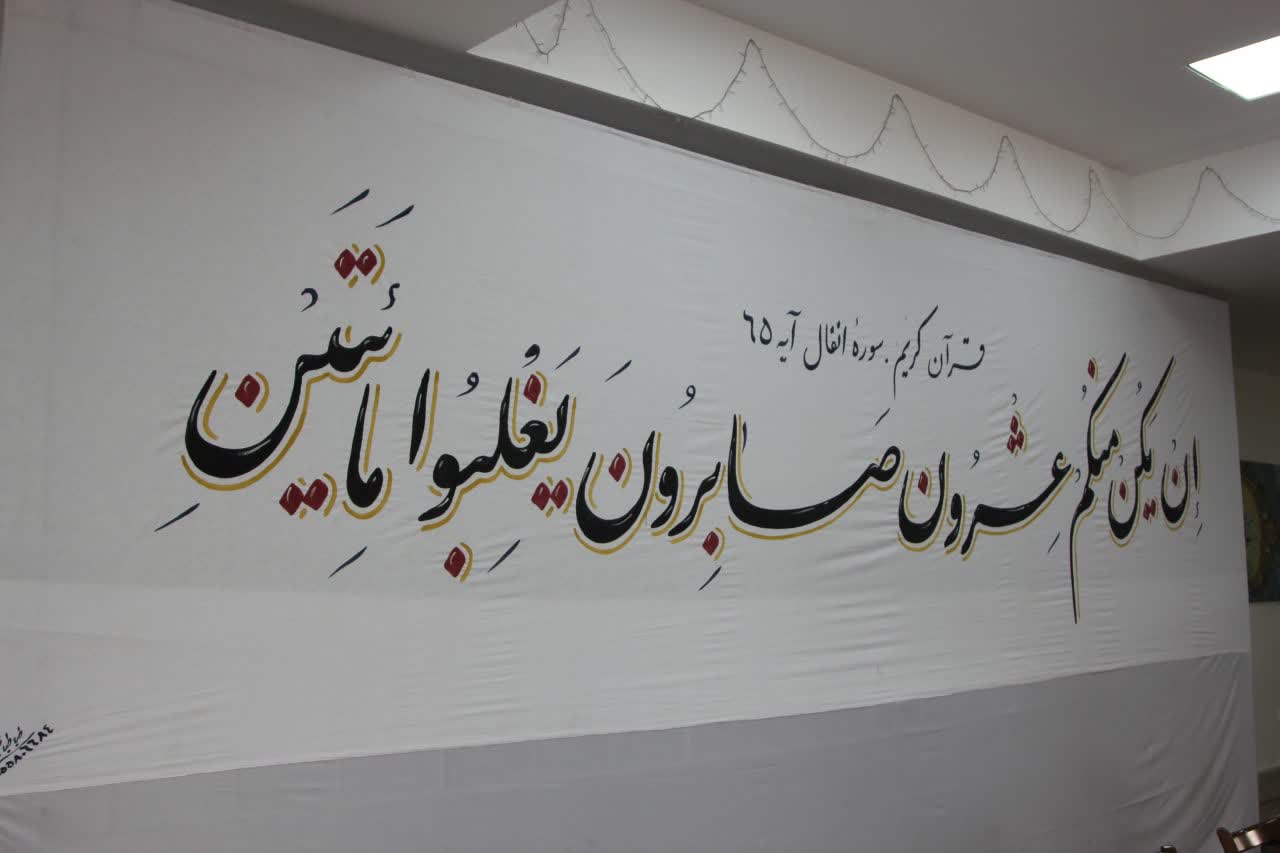 قرآن کریم . سورهٔ انفال آیه ٦٥
إِن یَکُن مِنکُم عِشرُون صَابِرُونَ یَغْلِبُوا مِائَتَیْنِ